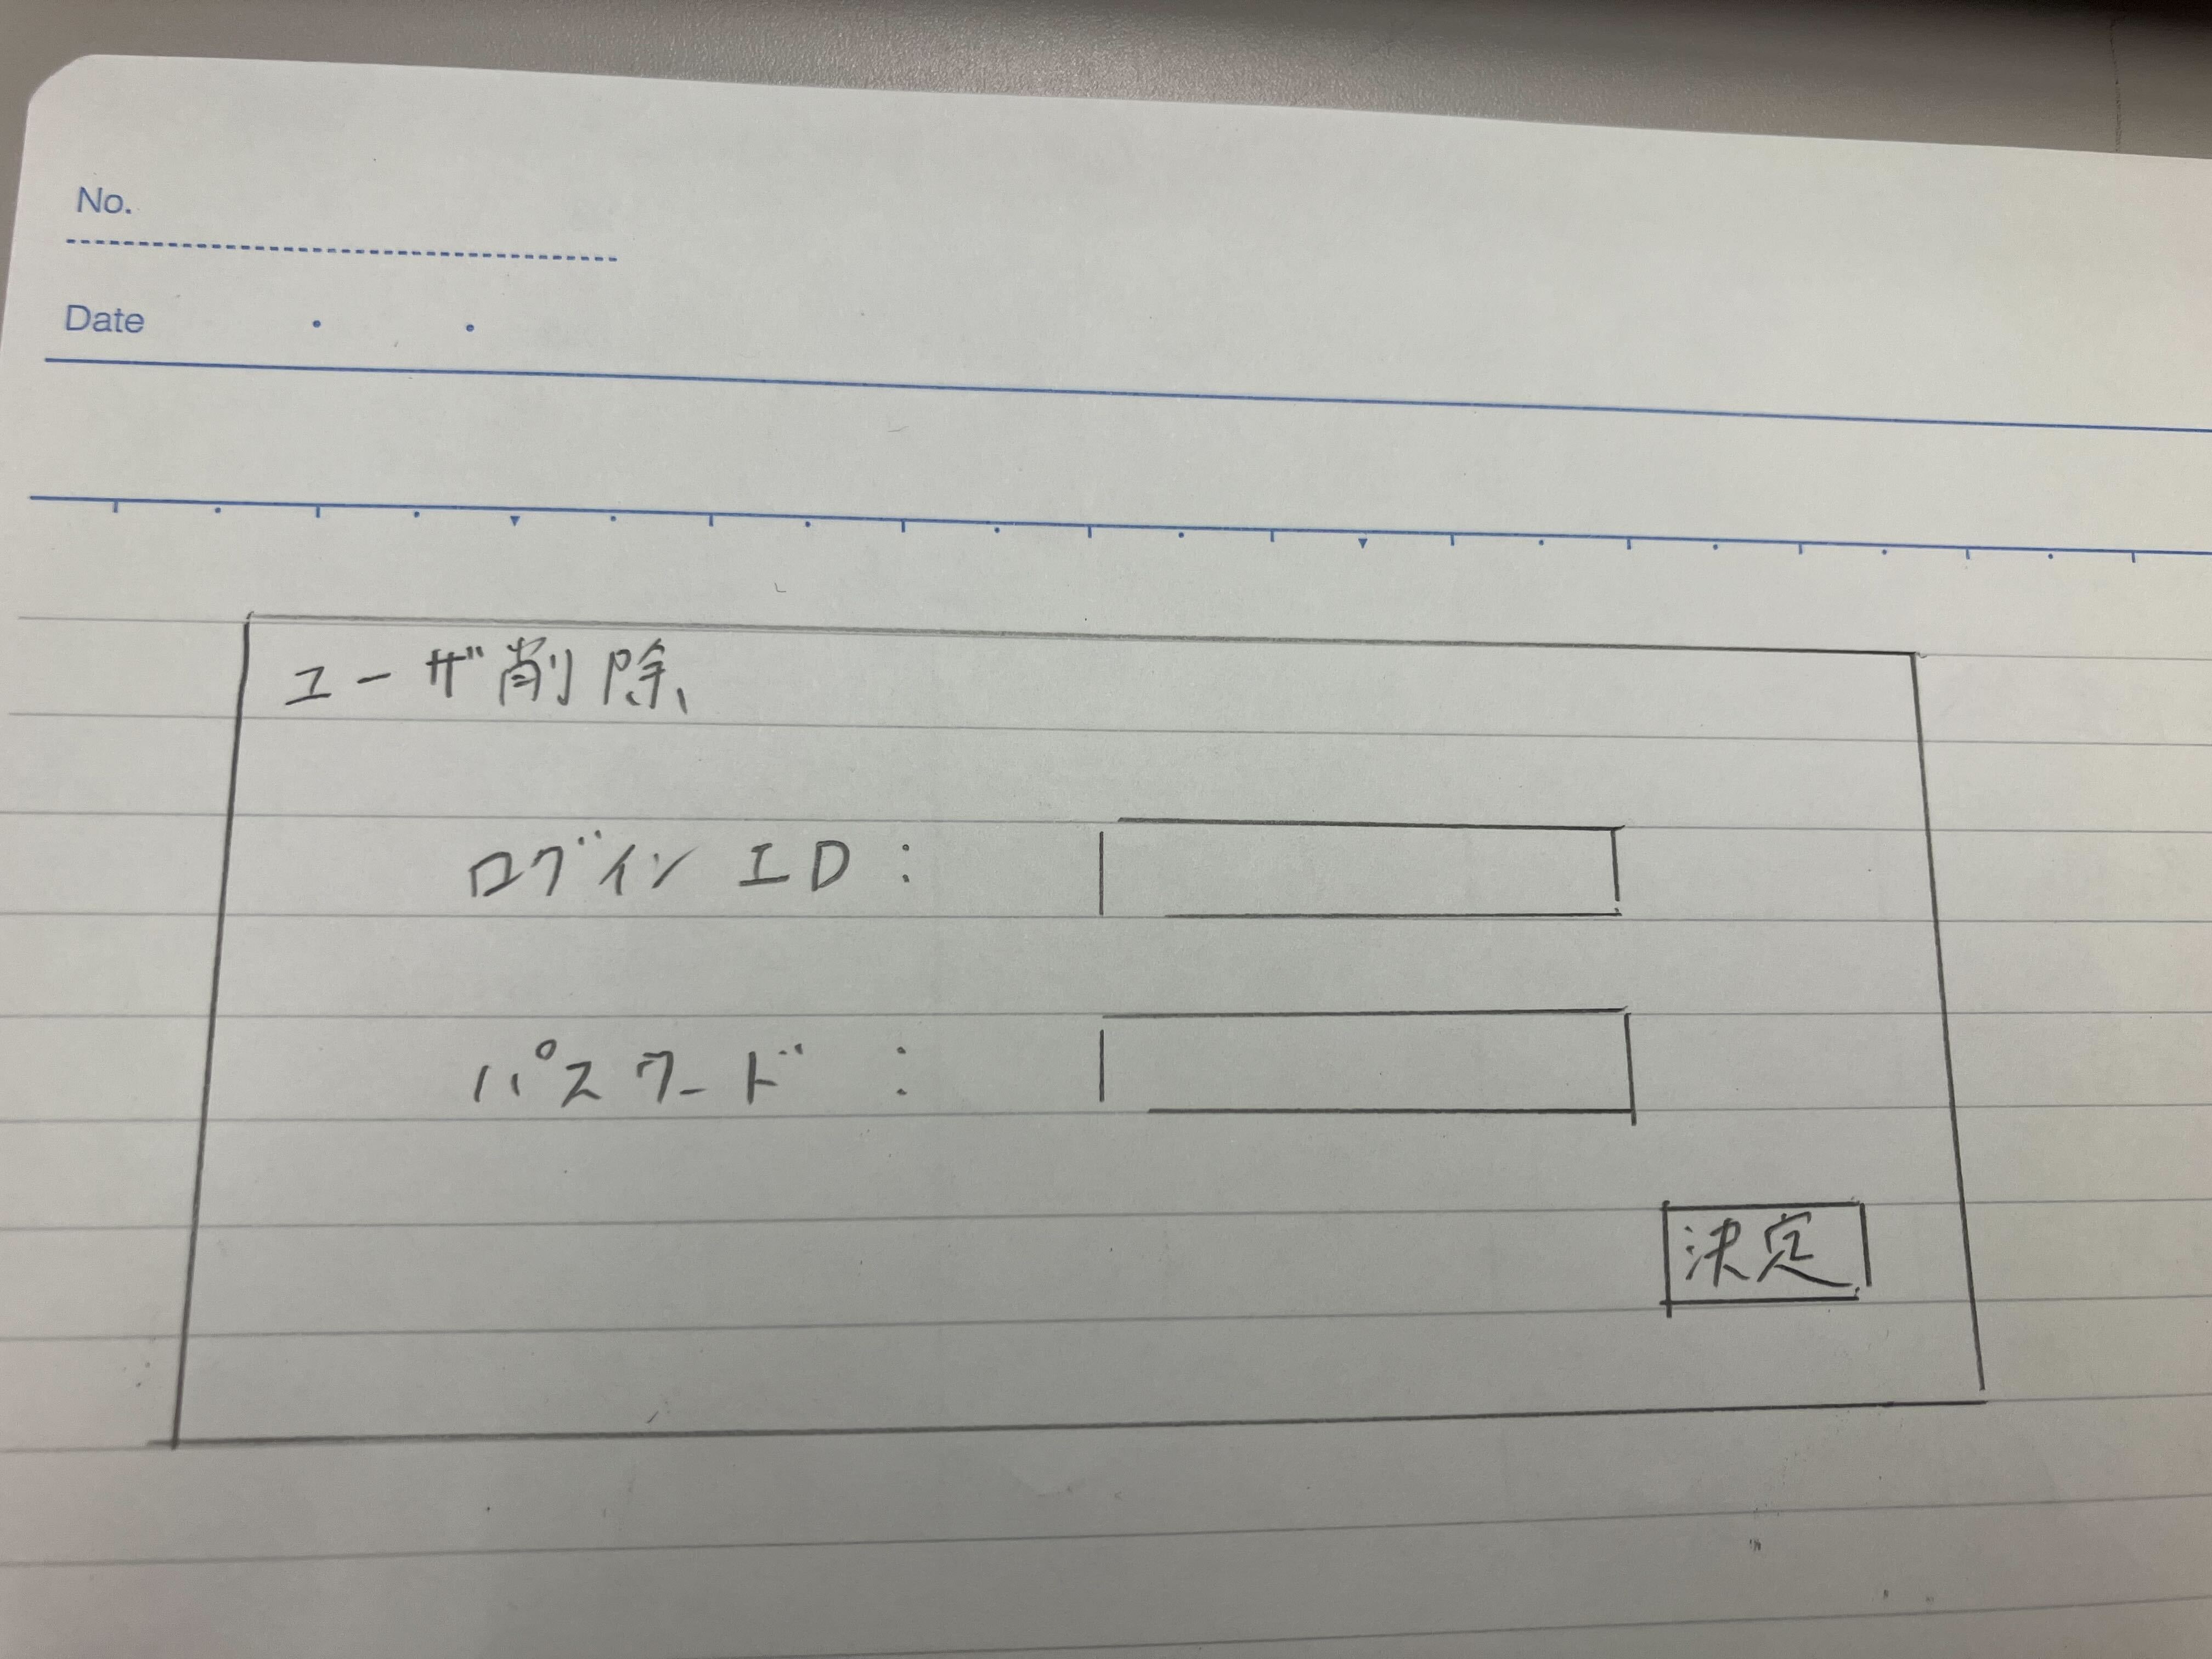 No.
Date
ユーザ削除
ログイン ID :
パスワード :
決定